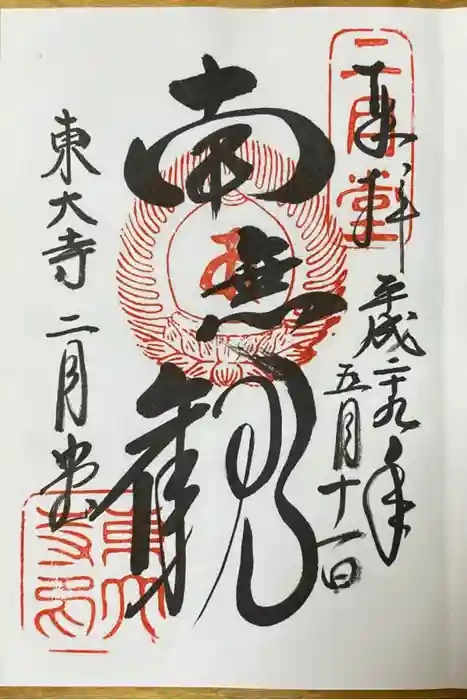 二月堂
奉拝
平成二十九年
五月十一日
南無観
東大寺 二月堂